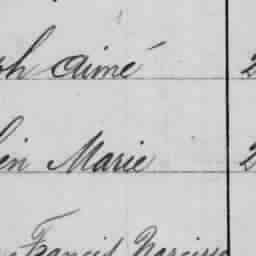 ph Aimé 2
en Marie 2
Francis Narcisse